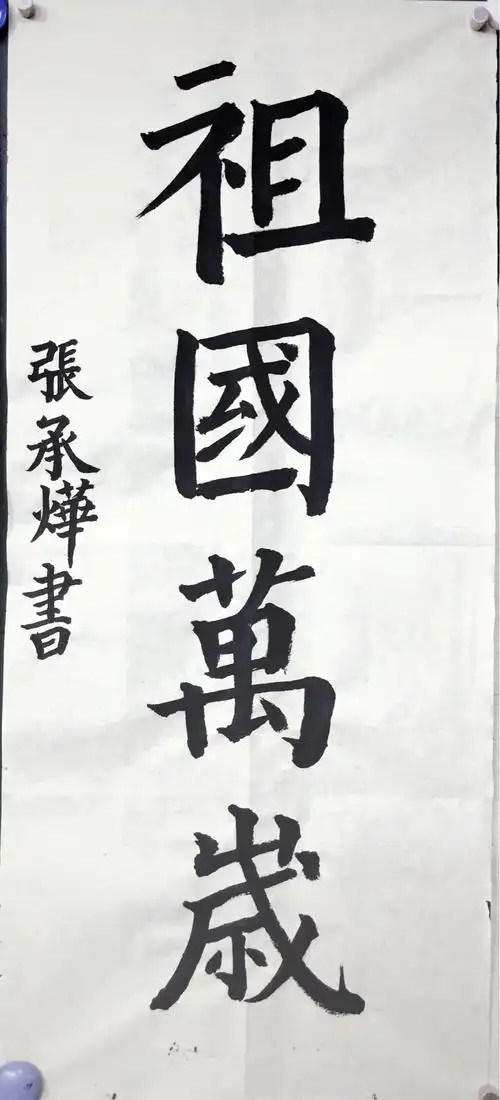 祖國萬歲
張承燁書